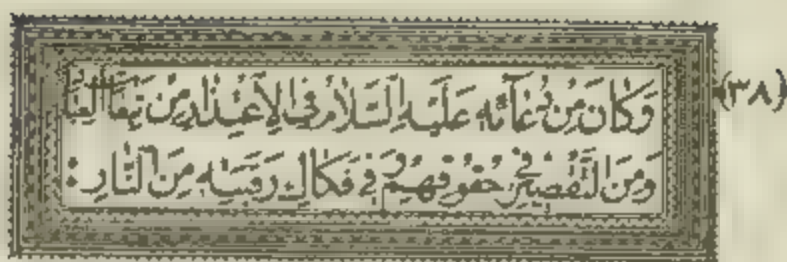 (٣٨)
وَكَانَ مِنْ دُعَائِهِ عَلَيْهِ السَّلَامُ فِي الْإِعْتِذَارِ مِنْ تَبِعَاتِ الْعِبَادِ
وَمِنَ التَّقْصِيرِ فِي حُقُوقِهِمْ وَفِي فَكَاكِ رَقَبَتِهِ مِنَ النَّارِ :